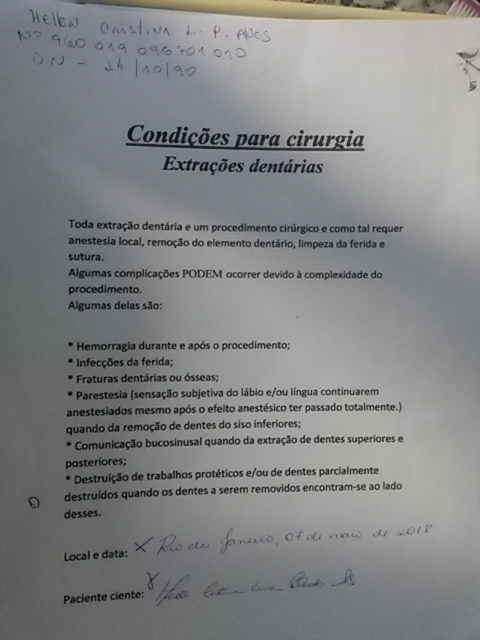 Hellen Cristina L. P. Alves
Nº 960 019 096701 010
DN - 24/10/90
Condições para cirurgia
Extrações dentárias
Toda extração dentária e um procedimento cirúrgico e como tal requer
anestesia local, remoção do elemento dentário, limpeza da ferida e
sutura.
Algumas complicações PODEM ocorrer devido à complexidade do
procedimento.
Algumas delas são:
* Hemorragia durante e após o procedimento;
* Infecções da ferida;
* Fraturas dentárias ou ósseas;
* Parestesia (sensação subjetiva do lábio e/ou língua continuarem
anestesiados mesmo após o efeito anestésico ter passado totalmente.)
quando da remoção de dentes do siso inferiores;
* Comunicação bucosinusal quando da extração de dentes superiores e
posteriores;
* Destruição de trabalhos protéticos e/ou de dentes parcialmente
destruídos quando os dentes a serem removidos encontram-se ao lado
desses.
Local e data: X Rio de Janeiro, 07 de maio de 2018
Paciente ciente: